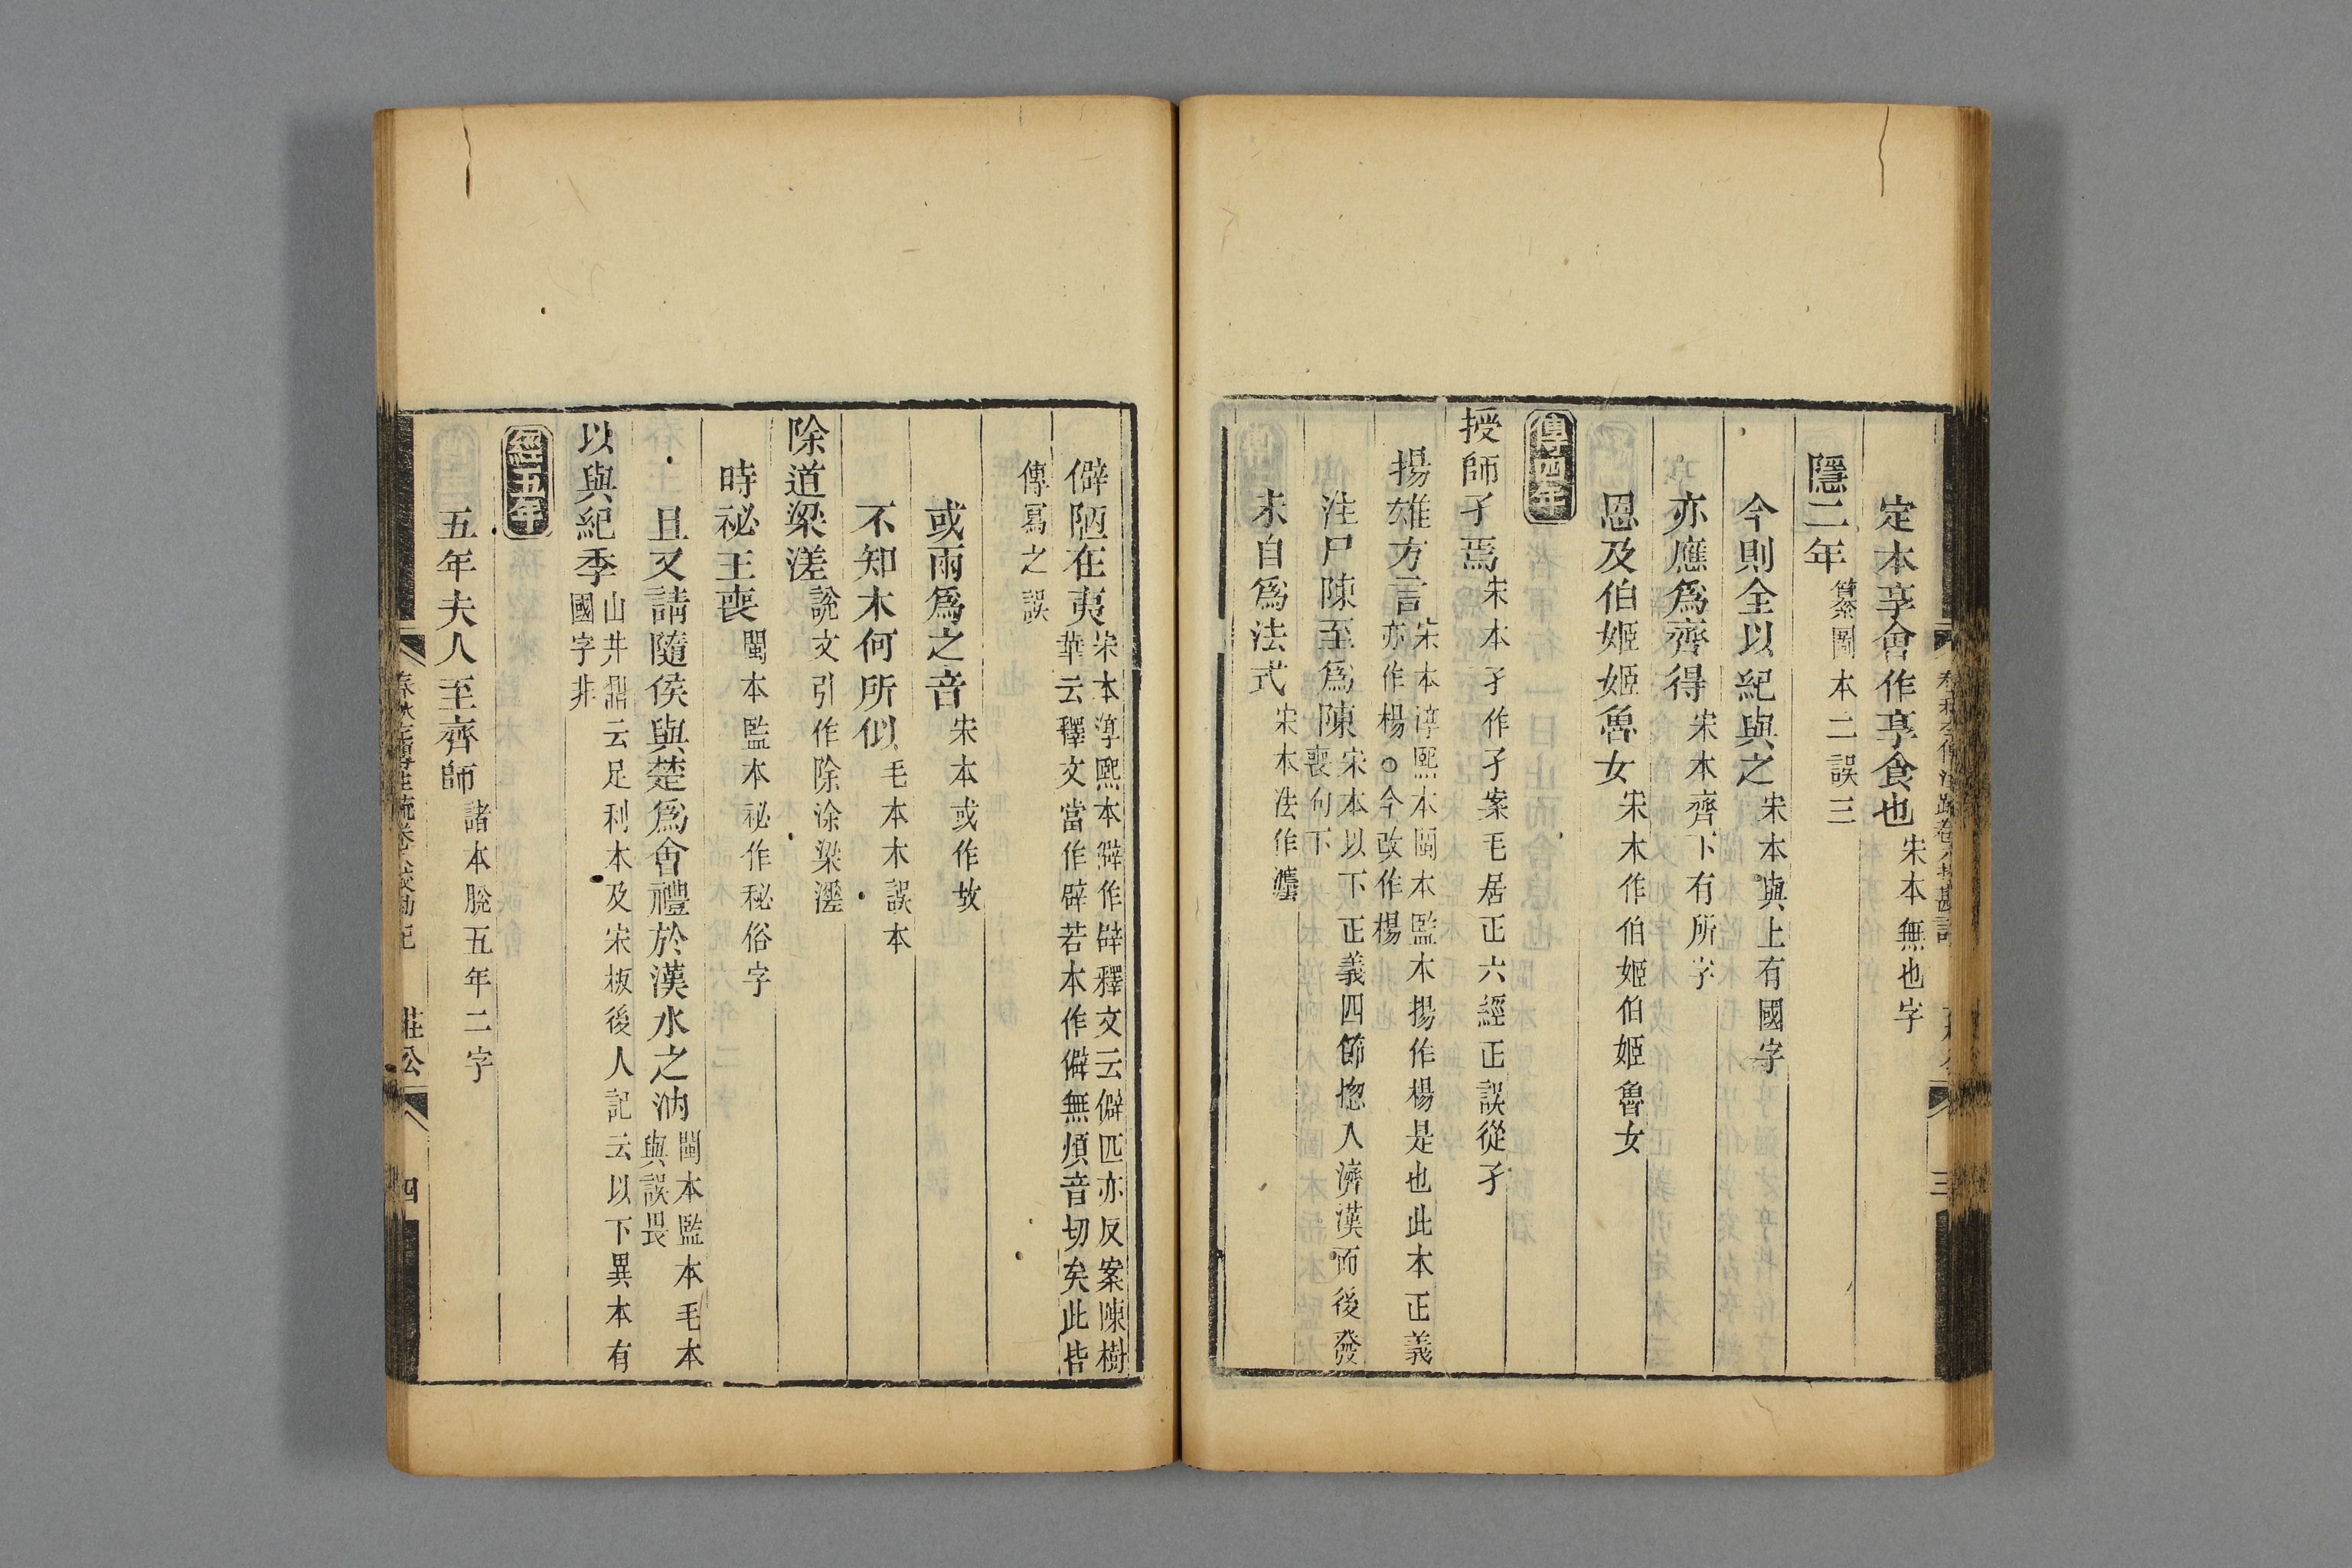 定本享會作享食也宋本無也字
隱二年纂圖本二誤三
今則全以紀與之宋本與上有國字
亦應爲齊得宋本齊下有所字
恩及伯姬姬魯女宋本作伯姬伯姬魯女
傳四年
授師孑焉宋本孑作孑案毛居正六經正誤從孑
揚雄方言宋本淳熙本閩本監本揚作楊是也此本正義
亦作楊○今改作楊
注尸陳至爲陳宋本以下正義四節惣入濟漢而後發
喪句下
未自爲法式宋本法作灋
僻陋在夷宋本淳熙本僻作辟釋文云僻匹亦反案陳樹
華云釋文當作辟若本作僻無煩音切矣此皆
傳冩之誤
或雨爲之音宋本或作故
不知木何所似毛本木誤本
除道梁溠說文引作除涂梁溠
時祕王喪閩本監本祕作秘俗字
且又請隨侯與楚爲會禮於漢水之汭閩本監本毛本
與誤畏
以與紀季山井鼎云足利本及宋板後人記云以下異本有
國字非
經五年
五年夫人至齊師諸本脫五年二字
春秋左傳注疏卷八挍勘記 莊公 四